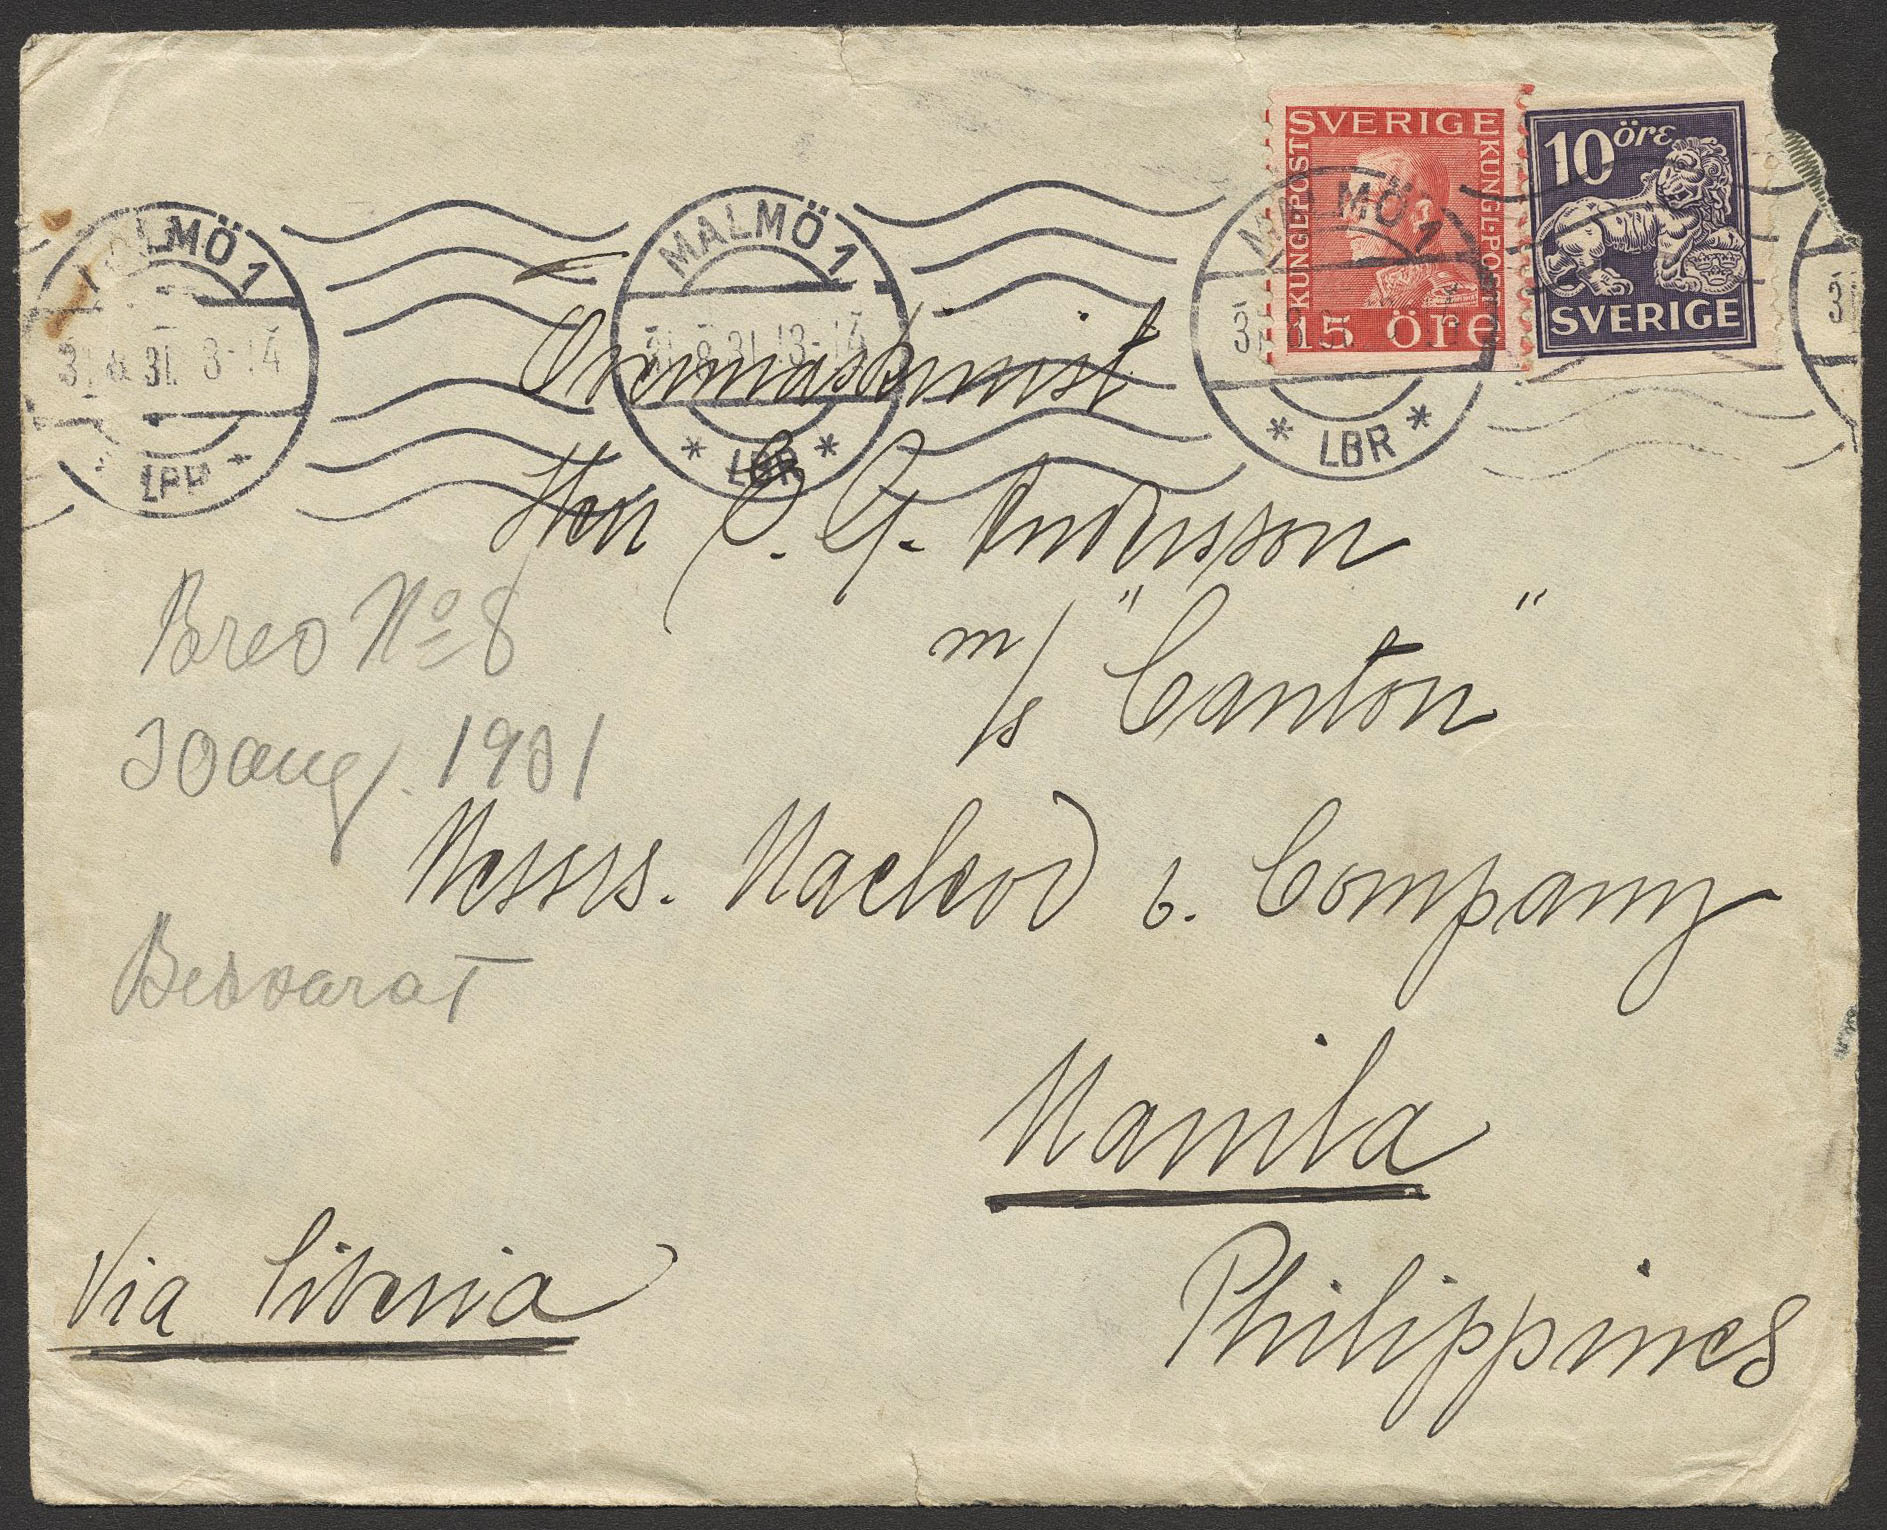 SVERIGE
KUNGL·POST
KUNGL·POST
15 ÖRE
10 öre
SVERIGE
MALMÖ 1
31.8.31. 13-14
* LBR *
MALMÖ 1
31.8.31. 13-14
* LBR *
MALMÖ 1
* LBR *
Herr C. G. Andersson
m/s "Canton"
Brev No 8
30 aug. 1931
Messrs. Macleod & Company
Besvarat
Manila
Via Siberia
Philippines